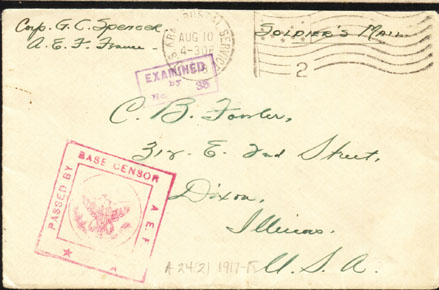 Corp. G. C. Spencer
A. E. F. France.
AUG 10
4-30P
SERVICE
SOLDIER'S MAIL
2
EXAMINED
by
No. 35
C. B. Fowler,
312 E. 2nd Street,
Dixon,
Illinois.
U. S. A.
PASSED BY BASE CENSOR A. E. F.
A 24(2) 1917-18